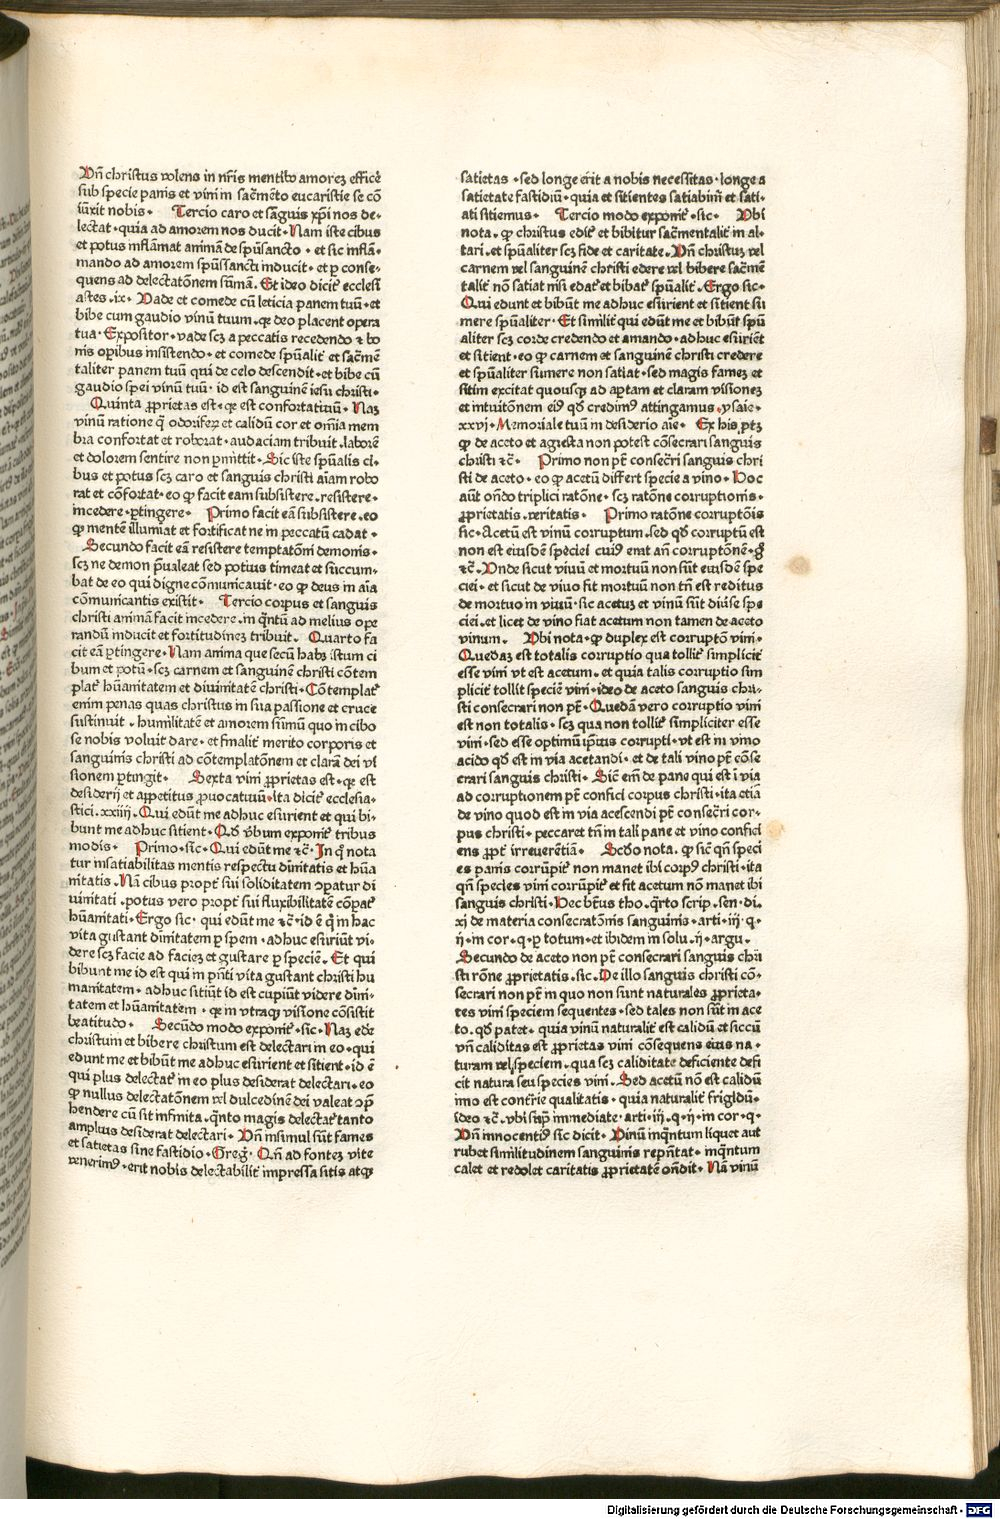 Vn̄ christus volens in nr̄is mentibꝰ amoreꝫ efficē
sub specie panis et vini in sacm̄ēto eucaristie se cō
iūxit nobis. Tercio caro et sāguis xp̄i nos de-
lectat. quia ad amorem nos ducit. Nam iste cibus
et potus inflāmat animā de spūsancto. et sic inflā-
mando ad amorem spūssancti inducit. et ꝑ conse-
quens ad delectatōnem sūmā. Et ideo dicit͛ ecclesi
astes. ix. Vade et comede cū leticia panem tuū. et
bibe cum gaudio vinū tuum. qꝛ deo placent opera
tua. Expositor. vade scꝫ a peccatis recedendo ⁊ bo
nis oꝑibus insistendo. et comede spūalit͛ et sacm̄ē
taliter panem tuū qui de celo descendit. et bibe cū
gaudio spei vinū tuū. id est sanguinē iesu christi.
Quinta ꝓprietas est. qꝛ est confortatiuū. Naꝫ
vinū ratione qͣ odoriferꝫ et calidū cor et om̄ia mem
bra confortat et roborat. audaciam tribuit. laborē
et dolorem sentire non ꝑmittit. Sic iste spūalis ci-
bus et potus scꝫ caro et sanguis christi aīam robo
rat et cōfortat. eo ꝙ facit eam subsistere. resistere.
incedere. ꝑtingere. Primo facit eā subsistere. eo
ꝙ mentē illumīat et fortificat ne in peccatū cadat.
Secundo facit eā resistere temptatōni demonis.
scꝫ ne demon p̄ualeat sed potius timeat et succum-
bat de eo qui digne cōmunicauit. eo ꝙ deus in aīa
cōmunicantis existit. Tercio corpus et sanguis
christi animā facit incedere. in qͣntū ad melius ope
randū inducit et fortitudineꝫ tribuit. Quarto fa
cit eā ꝑtingere. Nam anima que secū habꝫ istum ci
bum et potū. scꝫ carnem et sanguinē christi cōtem
plat͛ hūanitatem et diuinitatē christi. Cōtemplat͛
enim penas quas christus in sua passione et cruce
sustinuit. humilitatē et amorem sūmū quo in cibo
se nobis voluit dare. et finalit͛ merito corporis et
sanguinis christi ad cōtemplatōnem et clarā dei vi
sionem ꝑtingit. Sexta vini ꝓprietas est. qꝛ est
desiderij et appetitus ꝓuocatiuū. Ita dicit͛ ecclesia-
stici. xxiiij. Qui edūt me adhuc esurient et qui bi-
bunt me adhuc sitient. Qd̄ v̄bum exponit͛ tribus
modis. Primo. sic. Qui edūt me ⁊c̄. In qͦ nota
tur insatiabilitas mentis respectu diuītatis et hūa
nitatis. Nā cibus propt͛ sui soliditatem ꝯpatur di
uinitati. potus vero propt͛ sui fluxibilitatē cōpat͛
hūanitati. Ergo sic. qui edūt me ⁊c̄. id ē qͥ in hac
vita gustant diuītatem ꝑ spem. adhuc esuriūt vi-
dere scꝫ facie ad facieꝫ et gustare ꝑ speciē. Et qui
bibunt me id est qui in pn̄ti vita gustant christi hu
manitatem. adhuc sitiūt id est cupiūt videre diuī-
tatem et hūanitatem. qꝛ in vtraqꝫ visione cōsistit
beatitudo. Secūdo modo exponit͛. sic. Naꝫ ede
christum et bibere christum est delectari in eo. qui
edunt me et bibūt me adhuc esurient et sitient. id ē
qui plus delectat͛ in eo plus desiderat delectari. eo
ꝙ nullus delectatōnem vel dulcedinē dei valeat ꝯp̄
hendere cū sit infinita. qͣnto magis delectat͛ tanto
amplius desiderat delectari. Vn̄ insimul sūt fames
et satietas sine fastidio. Greg̛. Qn̄ ad fonteꝫ vite
venerimꝰ. erit nobis delectabilit͛ impressa sitis atqꝫ
satietas. sed longe erit a nobis necessitas. longe a
satietate fastidiū. quia et sitientes satiabim͛ et sati-
ati sitiemus. Tercio modo exponit͛. sic. Vbi
nota. ꝙ christus edit͛ et bibitur sacm̄entalit͛ in al-
tari. et spūaliter scꝫ fide et caritate. Vn̄ christuꝫ vel
carnem vel sanguinē christi edere vel bibere sacm̄ē
talit͛ nō satiat nisi edat͛ et bibat͛ spūalit͛. Ergo sic.
Qui edunt et bibūt me adhuc esurient et sitient su
mere spūaliter. Et similit͛ qui edūt me et bibūt spū
aliter scꝫ corde credendo et amando. adhuc esuriēt
et sitient. eo ꝙ carnem et sanguinē christi credere
et spūaliter sumere non satiat. sed magis fameꝫ et
sitim excitat quousqꝫ ad aptam et claram visioneꝫ
et intuitōnem eiꝰ qd̄ credimꝰ attingamus. ysaie.
xxvj. Memoriale tuū in desiderio aīe. Ex his pꝫ
ꝙ de aceto et agresta non potest cōsecrari sanguis
christi ⁊c̄. Primo non pt̄ consecr̄i sanguis chri
sti de aceto. eo ꝙ acetū differt specie a vino. Hoc
aūt on̄do triplici ratōne. scꝫ ratōne corruptionis.
ꝓprietatis. veritatis. Primo ratōne corruptōis
sic. Acetū est vinū corruptum. sed qd̄ corruptū est
non est eiusdē speciei cuiꝰ erat an̄ corruptōnē. g̊
⁊c̄. Vnde sicut viuū et mortuū non sūt eiusdē spe
ciei. et sicut de viuo fit mortuū non tn̄ est reditus
de mortuo in viuū. sic acetuꝫ et vinū sūt diūse spe
ciei. et licet de vino fiat acetum non tamen de aceto
vinum. Vbi nota. ꝙ duplex est corruptō vini.
Quedaꝫ est totalis corruptio qua tollit͛ simplicit͛
esse vini vt est acetum. et quia talis corruptio sim
plicit͛ tollit speciē vini. ideo de aceto sanguis chri-
sti consecrari non pt̄. Quedā vero corruptio vini
est non totalis. scꝫ qua non tollit͛ simpliciter esse
vini. sed esse optimū ip̄ius corrupti. vt est in vino
acido qd̄ est in via acetandi. et de tali vino pt̄ cōse
crari sanguis christi. Sic̄ em̄ de pane qui est ī via
ad corruptionem pt̄ confici corpus christi. ita etiā
de vino quod est in via acescendi pt̄ consecr̄i cor-
pus christi. peccaret tn̄ in tali pane et vino confici
ens ꝓpt͛ irreuerētiā. Scd̄o nota. ꝙ sic̄ qn̄ speci
es panis corrūpit͛ non manet ibi corpꝰ christi. ita
qn̄ species vini corrūpit͛ et fit acetum nō manet ibi
sanguis christi. Hec bt̄us tho. qͣrto scrip. sen. di.
xj de materia consecratōnis sanguinis. arti. iij. q.
ij. in cor. q. ꝑ totum. et ibidem in solu. ij. argu.
Secundo de aceto non pt̄ consecrari sanguis chri
sti rōne ꝓprietatis. sic. De illo sanguis christi cō-
secrari non pt̄ in quo non sunt naturales ꝓprieta-
tes vini speciem sequentes. sed tales non sūt in ace
to. qd̄ patet. quia vinū naturalit͛ est calidū et siccū
vn̄ caliditas est ꝓprietas vini cōsequens eius na-
turam vel speciem. qua scꝫ caliditate deficiente defi
cit natura seu species vini. Sed acetū nō est calidū
imo est contr̄ie qualitatis. quia naturalit͛ frigidū.
ideo ⁊c̄. vbi stap̄ immediate. arti. iij. q. ij. in cor. q.
Vn̄ innocentiꝰ sic dicit. Vinū inqͣntum liquet aut
rubet similitudinem sanguinis repn̄tat. inqͣntum
calet et redolet caritatis ꝓprietatē on̄dit. Nā vinū
Digitalisierung gefördert durch die Deutsche Forschungsgemeinschaft - DFG